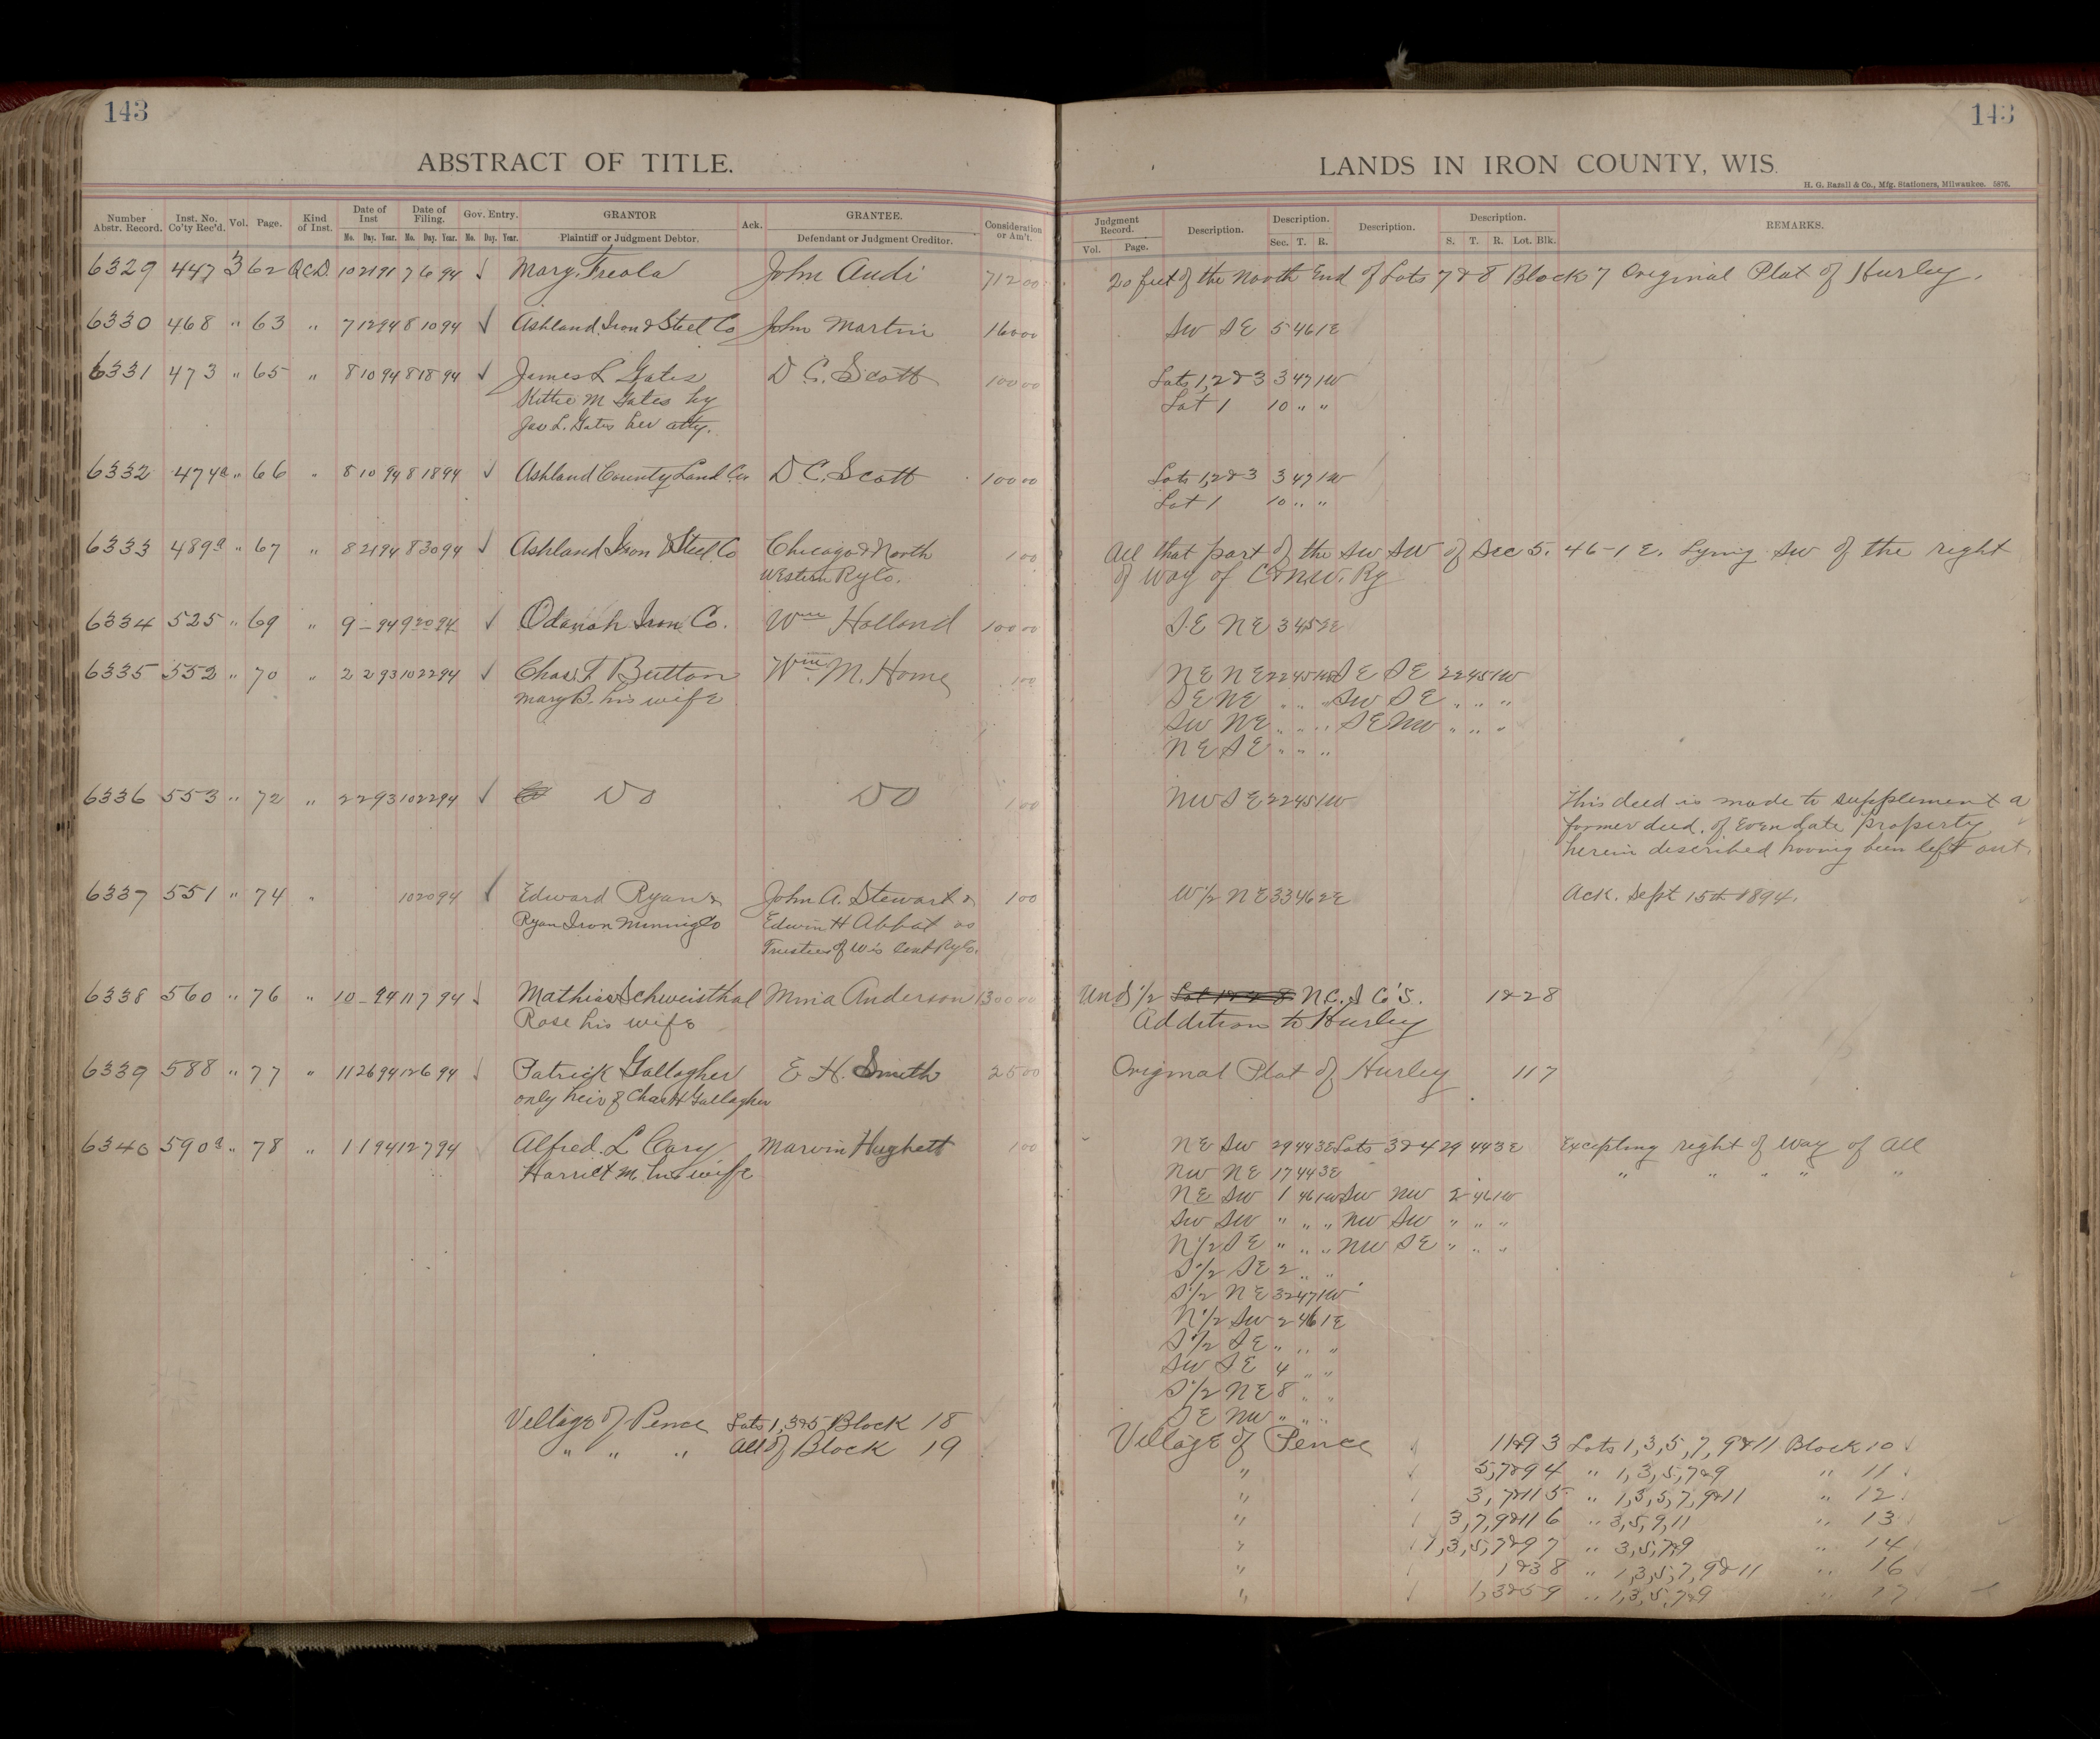 143
143
ABSTRACT OF TITLE.
LANDS IN IRON COUNTY, WIS.
H. G. Razall & Co., Mfg. Stationers, Milwaukee. 5876.
Number Abstr. Record. Inst. No. Co'ty Rec'd. Vol. Page. Kind of Inst. Date of Inst Mo. Day. Year. Date of Filing. Mo. Day. Year. Gov. Entry. Mo. Day. Year. GRANTOR Plaintiff or Judgment Debtor. Ack. GRANTEE. Defendant or Judgment Creditor. Consideration or Am't.
Judgment Record. Vol. Page. Description. Description. Sec. T. R. Description. Description. S. T. R. Lot. Blk. REMARKS.
6329 447 3 62 QCD. 10 21 91 7 6 94 √ Mary Freola John Audi 712 00 20 feet of the North End of Lots 7 & 8 Block 7 Original Plat of Hurley.
6330 468 " 63 " 7 12 94 8 10 94 √ Ashland Iron & Steel Co John Martin 160 00 SW SE 5 46 1E
6331 473 " 65 " 8 10 94 8 18 94 √ James L Gates D C. Scott 100 00 Lots 1,2 & 3 3 47 1W
Kittie M Gates by Lot 1 10 " "
Jas L. Gates her atty.
6332 474a " 66 " 8 10 94 8 18 94 √ Ashland County Land Co D C. Scott 100 00 Lots 1,2 & 3 3 47 1W
Lot 1 10 " "
6333 489a " 67 " 8 21 94 8 30 94 √ Ashland Iron & Steel Co Chicago & North 1 00 All that part of the SW SW of Sec 5. 46-1 E. Lying SW of the right
Western Ry Co. of way of C & N.W. Ry
6334 525 " 69 " 9 – 94 9 20 94 √ Odanah Iron Co. Wm Holland 100 00 S.E NE 3 45 2E
6335 552 " 70 " 2 2 93 10 22 94 √ Chas. T Button Wm. M. Home 1 00 NE NE 22 45 1W SE SE 22 45 1W
Mary B. his wife SE NE " " " SW SE " " "
SW NE " " " SE NW " " "
NE SE " " "
6336 553 " 72 " 2 2 93 10 22 94 √ DO DO 1 00 NW SE 22 45 1W This deed is made to supplement a
former deed. of Even date property
herein described having been left out.
6337 551 " 74 " 10 20 94 √ Edward Ryan & John A. Stewart & 1 00 W 1/2 NE 33 46 2E Ack. Sept 15th 1894.
Ryan Iron Mining Co Edwin H Abbot as
Trustees of Wis Cent Ry Co.
6338 560 " 76 " 10 – 94 11 7 94 √ Mathias Schweisthal Mina Anderson 1300 00 Und 1/2 N.C. I Co'S. 1 & 2 8
Rose his wife Addition to Hurley
6339 588 " 77 " 11 26 94 12 6 94 √ Patrick Gallagher E H. Smith 25 00 Original Plat of Hurley 11 7
only heir of Chas H Gallagher
6340 590a " 78 " 1 1 94 12 7 94 Alfred. L Cary Marvin Hughett 1 00 NE SW 29 44 3E Lots 3 & 4 29 44 3E Excepting right of way of all
Harriet M his wife NW NE 17 44 3E " " " " "
NE SW 1 46 1W SW NW 2 46 1W
SW SW " " " NW SW " " "
N 1/2 SE " " " NW SE " " "
S 1/2 SE 2 " "
S 1/2 NE 32 47 1W
N 1/2 SW 2 46 1E
S 1/2 SE " " "
SW SE 4 " "
S 1/2 NE 8 " "
SE NW " " "
Village of Pence Lots 1, 3 & 5 Block 18
" " " All of Block 19
Village of Pence √ 1 & 9 3 Lots 1, 3, 5, 7, 9 & 11 Block 10 √
" √ 5, 7 & 9 4 " 1, 3, 5, 7 & 9 " 11 √
" √ 3, 7 & 11 5 " 1, 3, 5, 7, 9 & 11 " 12 √
" √ 3, 7, 9 & 11 6 " 3, 5, 9, 11 " 13 √
" √ 1, 3, 5, 7 & 9 7 " 3, 5, 7, 9 " 14 √
" √ 1 & 3 8 " 1, 3, 5, 7, 9 & 11 " 16
" √ 1, 3 & 5 9 " 1, 3, 5, 7 & 9 " 17